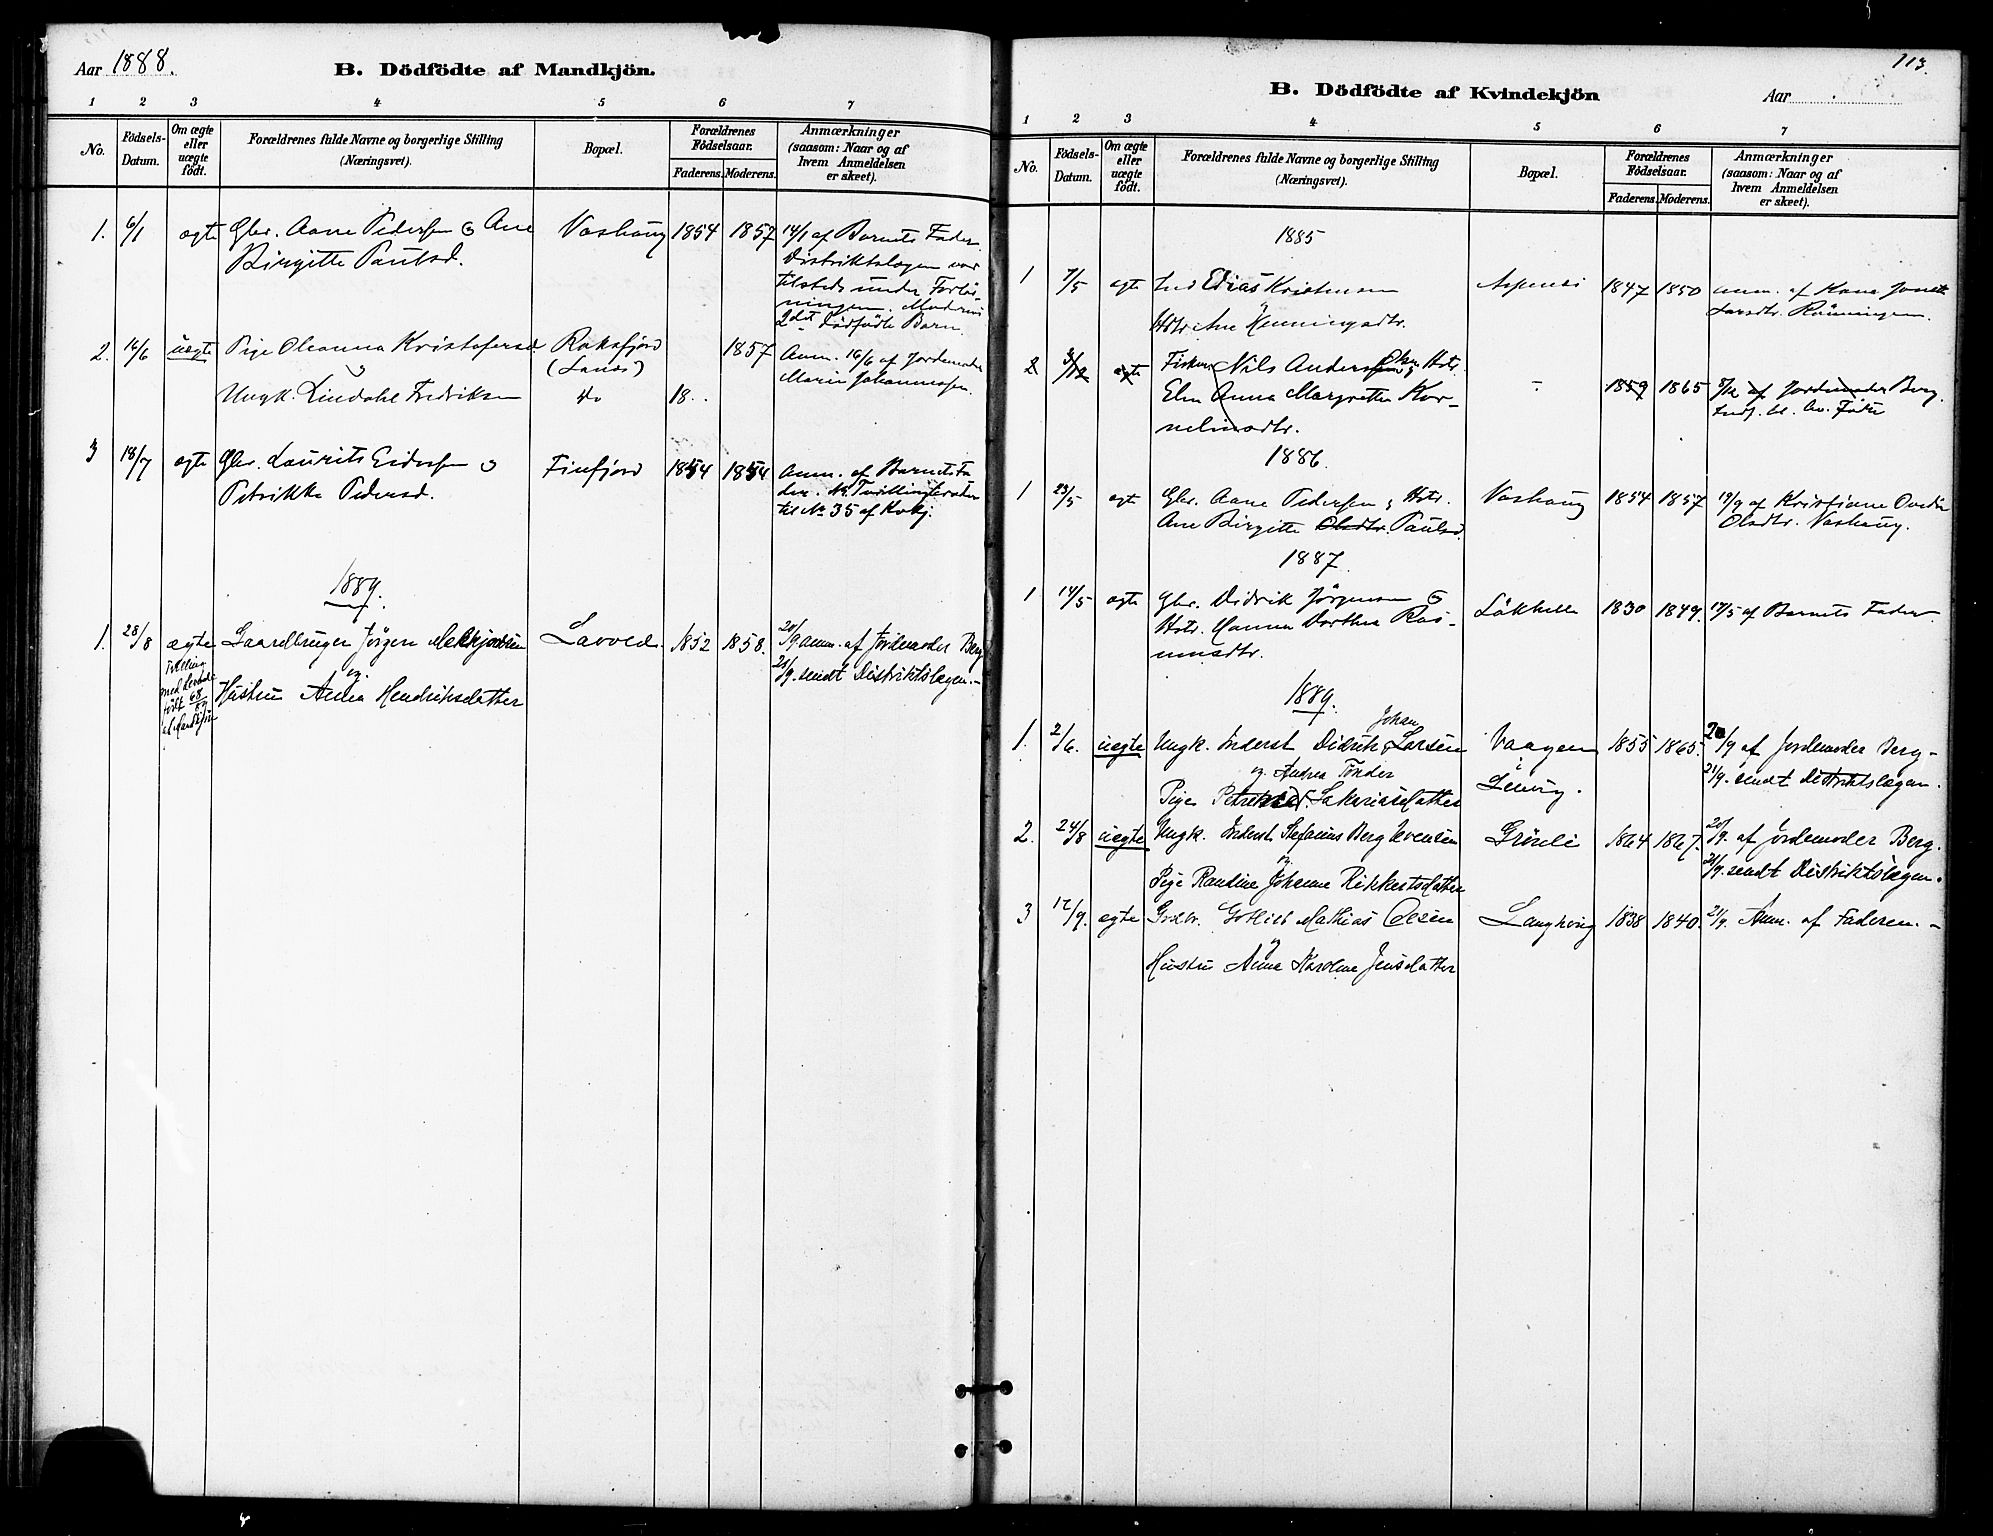 Aar 1888.
B. Dödfödte af Mandkjön.
1 2 3 4 5 6 7
No.
Födsels-Datum.
Om ægte eller uægte födt.
Forældrenes fulde Navne og borgerlige Stilling (Næringsvei).
Bopæl.
Forældrenes Födselsaar.
Faderens. Moderens.
Anmærkninger (saasom: Naar og af hvem Anmeldelsen er skeet).
1. 6/1 ægte Gbr. Aane Pedersen & Ane Vashaug 1854 1857 14/1 af Barnets Fader.
Birgitte Paulsd. Distriktslægen var
tilstede under Forlös-
ningen. Moderens
2det dödfödte Barn.
2. 16/6 uægte Pige Oleanna Kristofersd. Roksfjord 1857 Anm. 16/6 af Jordemoder
(Lanes) Marie Johannessen.
Ungk. Lindahl Fredriksen do 18..
3 18/7 ægte Gbr. Laurits Eidesen & Finfjord 1854 1854 Anm. af Barnets Fa-
Petrikke Pedersd. der.
til No 35 af Kvkj.
1889.
1. 28/8 ægte Gaardbruger Jörgen Lavved. 1852 1858. 20/9 anm. af Jordemoder Berg
Tvilling og 21/9. sendt Distriktslægen.-
med levende Hustru Andrea Hendriksdatter
födt 68/89
af Mandkjön
113.
B. Dödfödte af Kvindekjön
Aar
1 2 3 4 5 6 7
No.
Födsels-Datum.
Om ægte eller uægte födt.
Forældrenes fulde Navne og borgerlige Stilling (Næringsvei).
Bopæl.
Forældrenes Födselsaar.
Faderens. Moderens.
Anmærkninger (saasom: Naar og af hvem Anmeldelsen er skeet).
1885
1 7/5 ægte Ind Edias Kristensen 1847 1850 anm. af
& Larsdtr. Rönningen.
Hstr. Ane Henningsdtr.
2 3/12 ægte Fisker Nils Andersen Olsen & Hstr. - 1859 1865 7/12 af Jordemoder Berg.
Elen Anna Margrethe Kor-
nelinsdtr.
1886.
1 23/5 ægte Gbr. Aane Pedersen & Hstr. Vashaug 1854 1857 19/9 af Kristiane
Ane Birgitte Olsdtr. Paulsd. Olsdtr. Vashaug.
1887.
1 14/5 ægte Gbr. Didrik Jörgensen & Lökhelle 1830 1849. 17/5 af Barnets Fader.
Hstr. Hanna Dorthea Ras-
musdtr.
1889.
1. 2/6. uægte Ungk. Inderst Didrik Johan Larsen Vaagen 1855 1865. 20/9 af Jordemoder Berg-
og Andrea Tönder i 21/9. sendt Distriktslægen.
Pige Sakariasdatter
2. 24/8 uægte Ungk. Inderst Stefanus Berg Evensen Grönli 1864 1867. 20/9. af Jordemoder Berg.
og 21/9. sendt Distriktslægen.
Pige Randine Johanne Rikkertsdatter
3 12/9. ægte Grdbr. Gotlieb Mathias Olesen Langhvig 1838 1840. 21/9. Anm. af Faderen.-
og
Hustru Anne Karoline Jensdatter